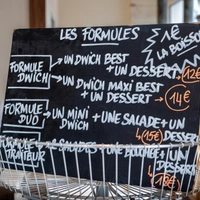 LES FORMULES
1€
LA BOISSON
FORMULE DWICH
UN DWICH BEST
+ UN DESSERT 12€
UN DWICH MAXI BEST
+ UN DESSERT 14€
FORMULE DUO
UN MINI DWICH + UNE SALADE + UN DESSERT
15€
FORMULE TRAITEUR
SALADES + UNE + UN
18€